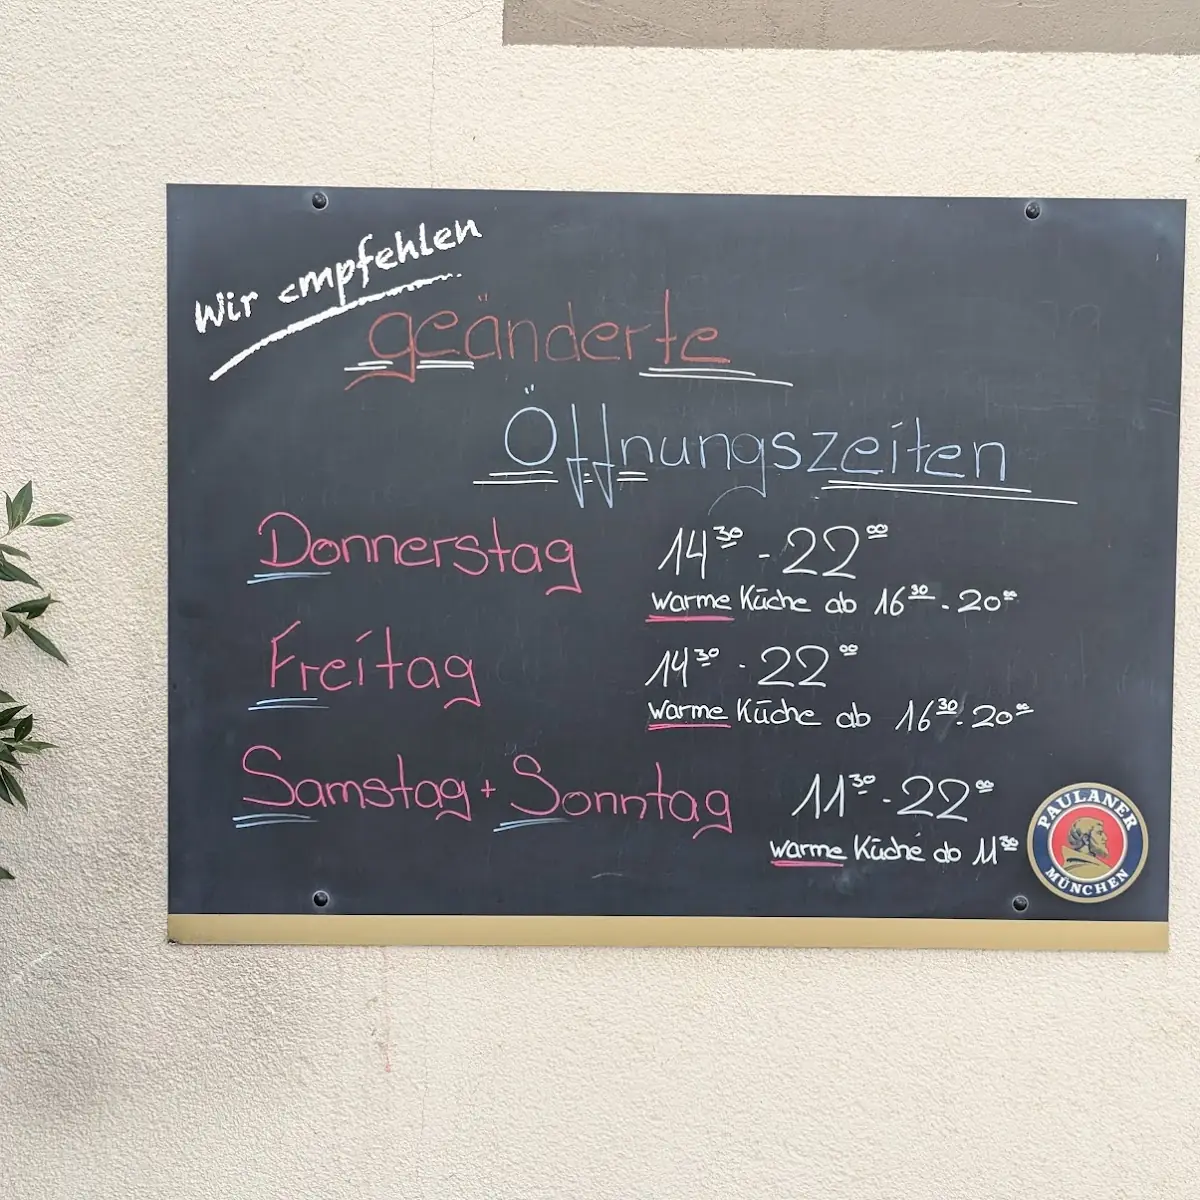 Wir empfehlen
geänderte
Öffnungszeiten
Donnerstag 14³⁰ - 22⁰⁰
warme Küche ab 16³⁰ - 20⁰⁰
Freitag 14³⁰ - 22⁰⁰
warme Küche ab 16³⁰ - 20⁰⁰
Samstag + Sonntag 11³⁰ - 22⁰⁰
warme Küche ab 11³⁰
PAULANER
MÜNCHEN